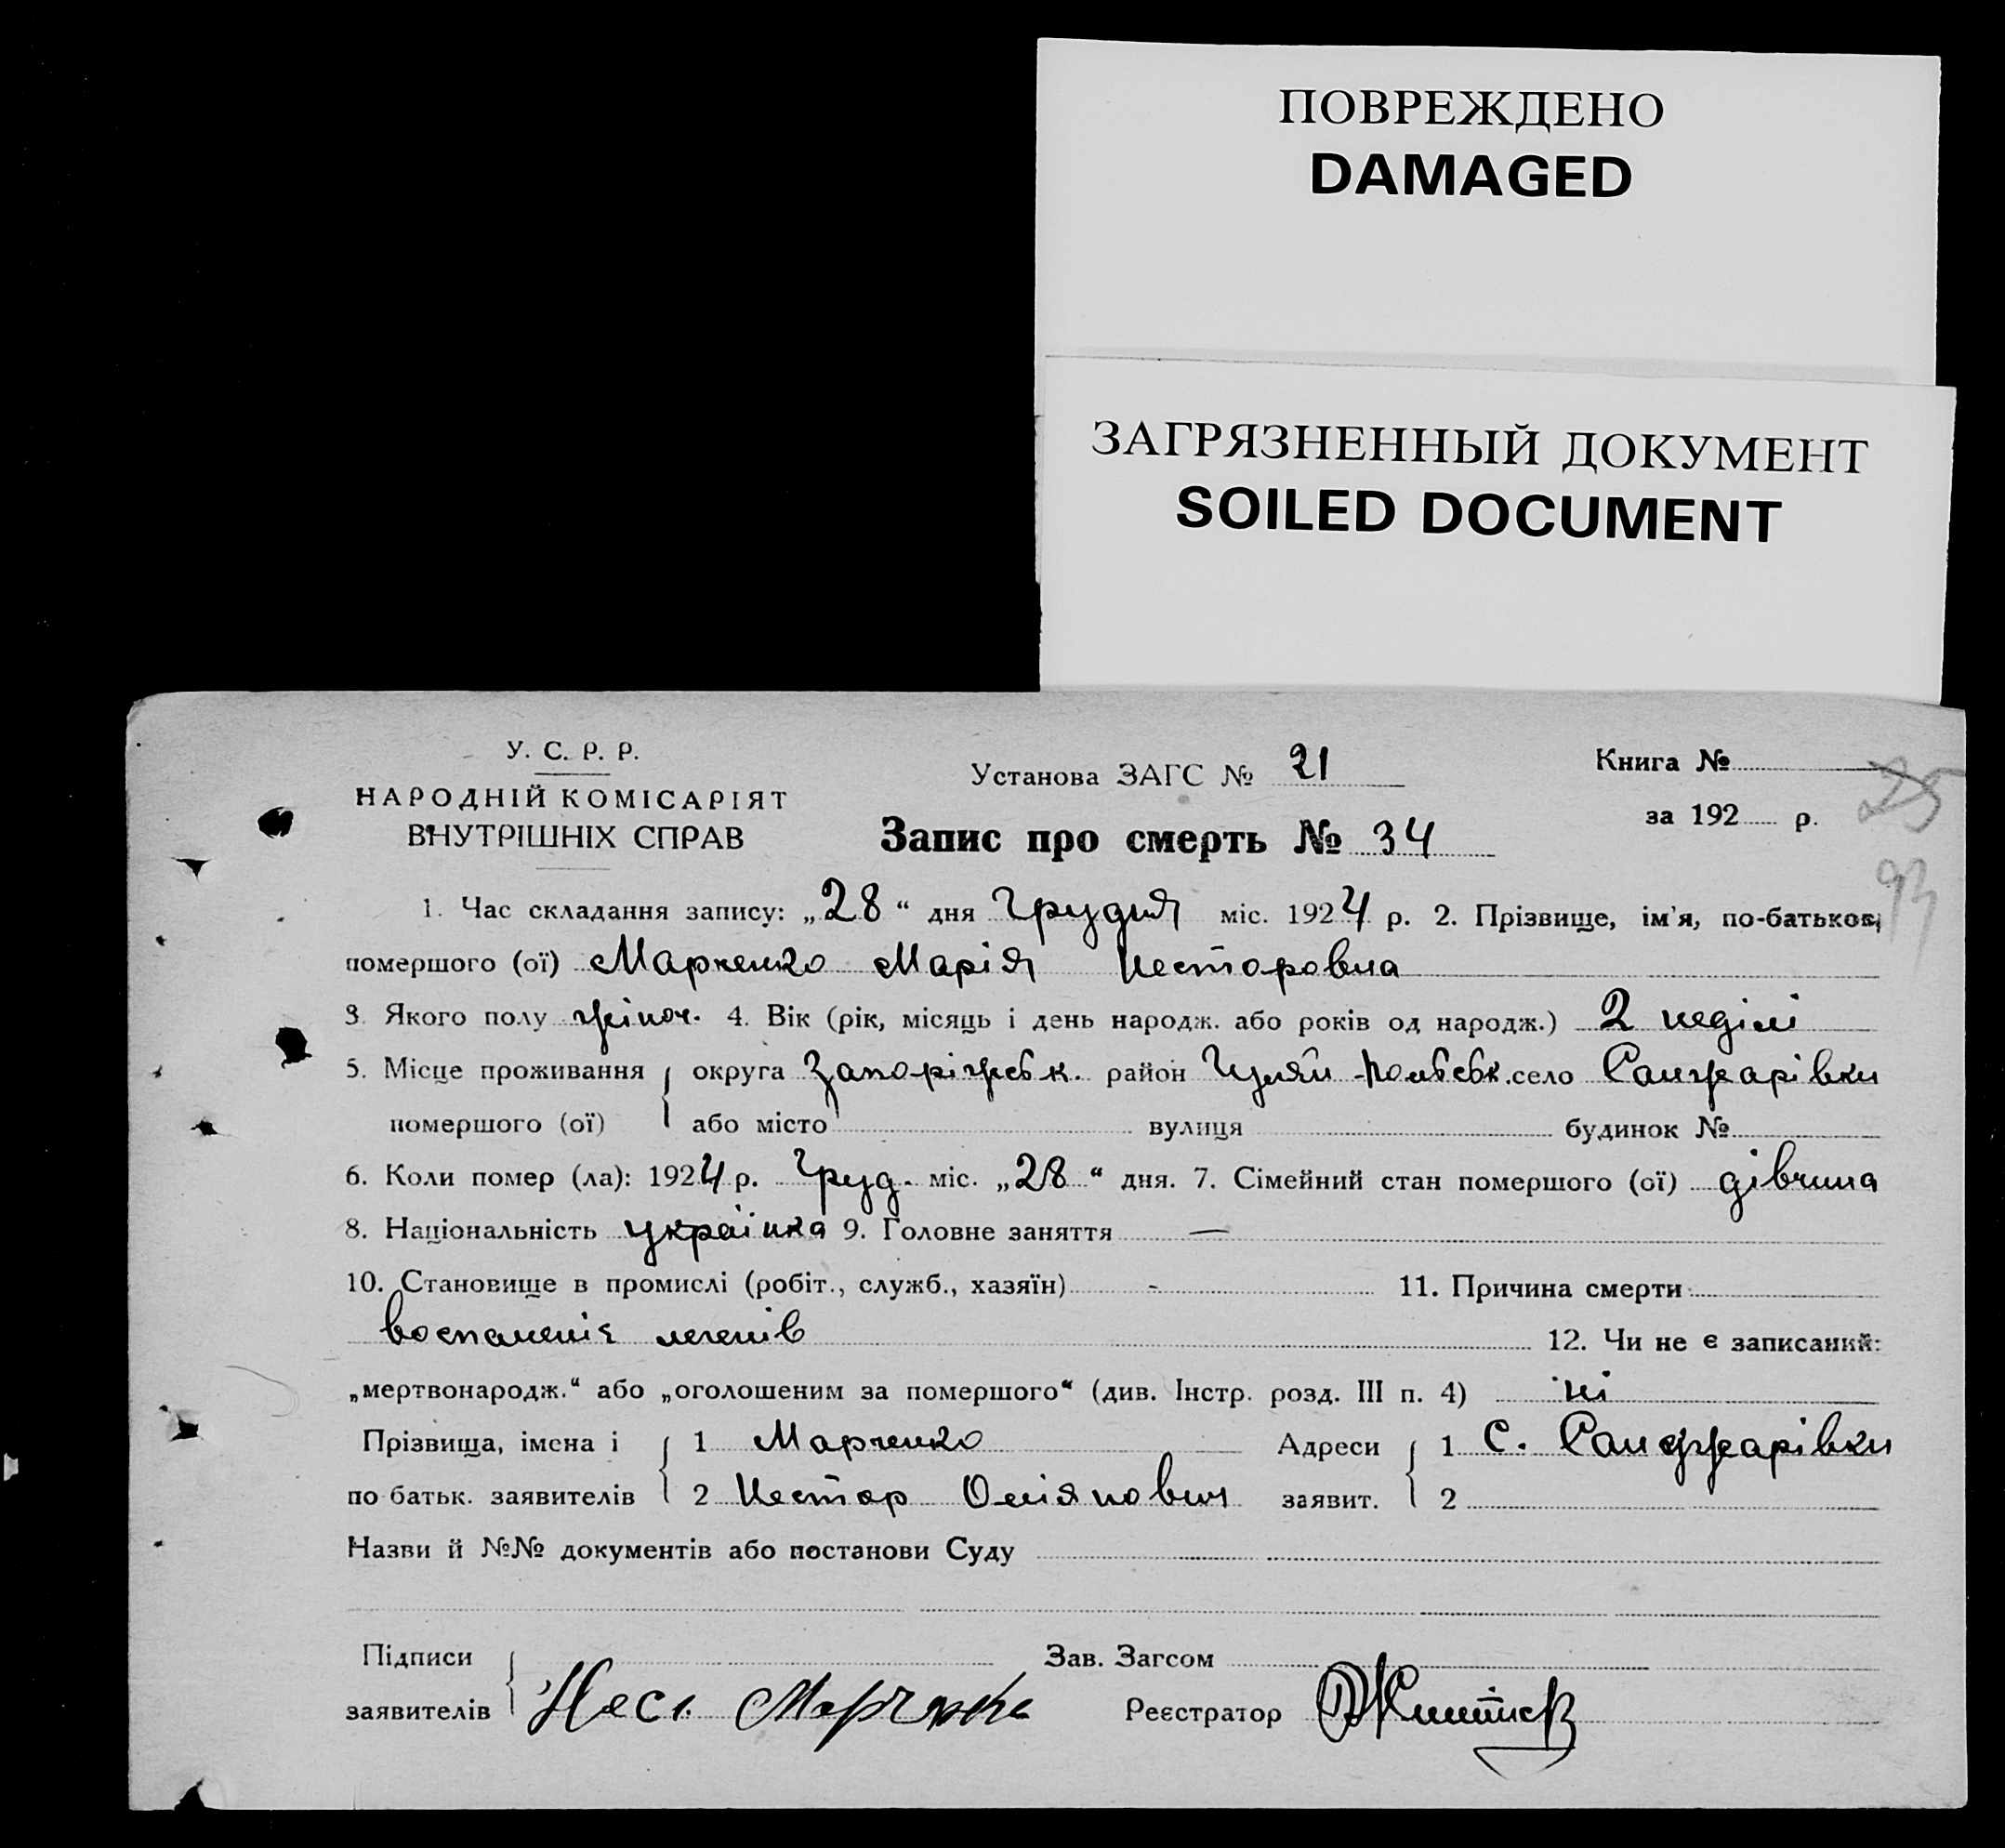 ПОВРЕЖДЕНО
DAMAGED
ЗАГРЯЗНЕННЫЙ ДОКУМЕНТ
SOILED DOCUMENT
У. С. Р. Р.
НАРОДНІЙ КОМІСАРІЯТ
ВНУТРІШНІХ СПРАВ
Установа ЗАГС № 21
Запис про смерть № 34
Книга №
за 192 р.
25
93
1. Час складання запису: „28“ дня Грудня міс. 1924 р. 2. Прізвище, ім'я, по-батькові
помершого (ої) Марченко Марія Несторовна
3. Якого полу жіноч. 4. Вік (рік, місяць і день народж. або років од народж.) 2 неділі
5. Місце проживання округа Запоріжськ. район Гуляй-Польськ. село Санжарівки
помершого (ої) або місто вулиця будинок №
6. Коли помер (ла): 1924 р. Груд. міс. „28“ дня. 7. Сімейний стан помершого (ої) дівчина
8. Національність українка 9. Головне заняття —
10. Становище в промислі (робіт., служб., хазяїн) - 11. Причина смерти
воспаленіє легенів 12. Чи не є записаний:
„мертвонародж.“ або „оголошеним за помершого“ (див. Інстр. розд. III п. 4) ні
Прізвища, імена і 1 Марченко Адреси 1 С. Санджарівки
по батьк. заявителів 2 Нестор Омілянович заявит. 2
Назви й №№ документів або постанови Суду
Підписи Зав. Загсом
заявителів Нест. Марченко Реєстратор